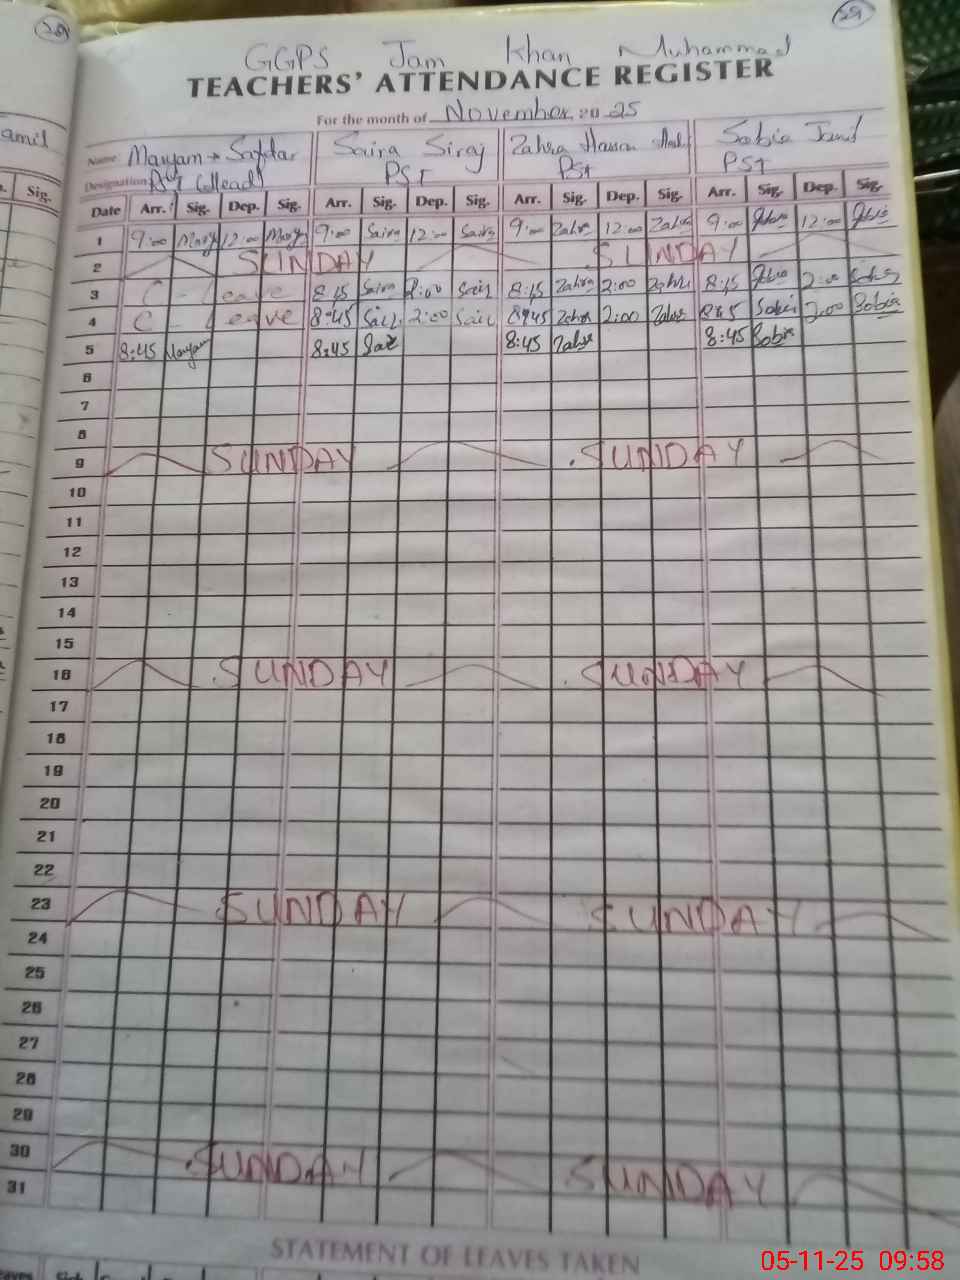 29
29
GGPS Jam Khan Muhammad
TEACHERS' ATTENDANCE REGISTER
For the month of November 2025
amil
Name Maryam Safdar Saira Siraj Zahra Hassan Sobia Jamil
Designation PST (Head) PST PST PST
Sig.
Date Arr. Sig. Dep. Sig. Arr. Sig. Dep. Sig. Arr. Sig. Dep. Sig. Arr. Sig. Dep. Sig.
1 9:00 Mary 12:00 Mary 9:00 Saira 12:00 Saira 9:00 Zahra 12:00 Zahra 9:00 12:00
2 SUNDAY SUNDAY
3 C - Leave 8:15 Saira 2:00 Sair 8:15 Zahra 2:00 Zahra 8:15 2:00
4 C - Leave 8:45 2:00 8:45 Zahra 2:00 Zahra 8:45 Sobi 2:00 Sobia
5 8:45 Maryam 8:45 Sai 8:45 Zahra 8:45 Sobia
6
7
8
9 SUNDAY SUNDAY
10
11
12
13
14
15
16 SUNDAY SUNDAY
17
18
19
20
21
22
23 SUNDAY SUNDAY
24
25
26
27
28
29
30 SUNDAY SUNDAY
31
STATEMENT OF LEAVES TAKEN
05-11-25 09:58